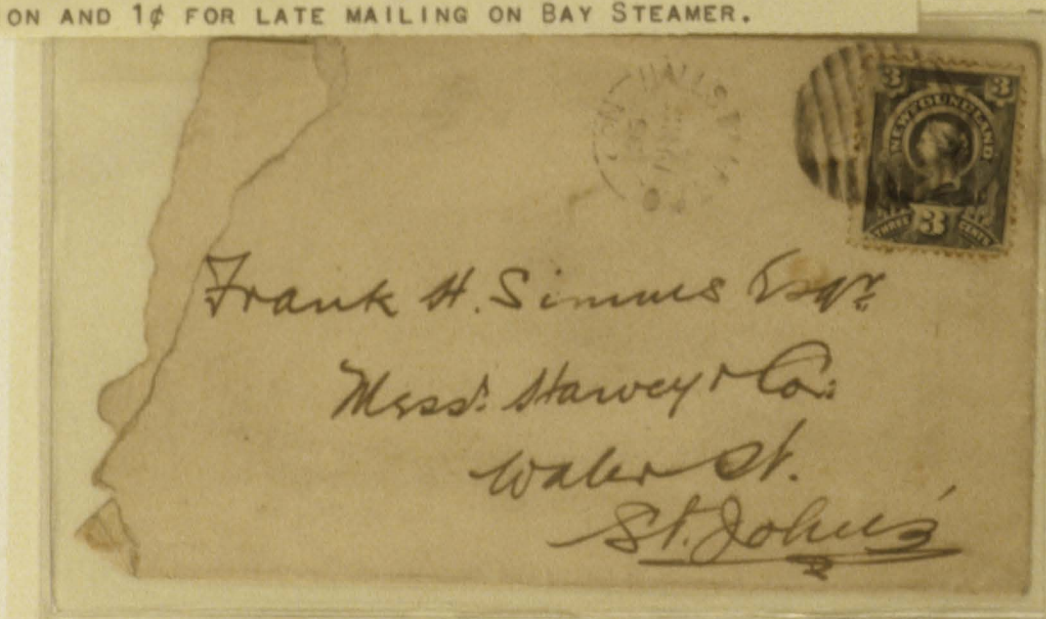 ON AND 1¢ FOR LATE MAILING ON BAY STEAMER.
3 3
NEWFOUNDLAND
THREE 3 CENTS
Frank H. Simms Esqr.
Messrs. Harvey & Co:
Water St.
St. John's